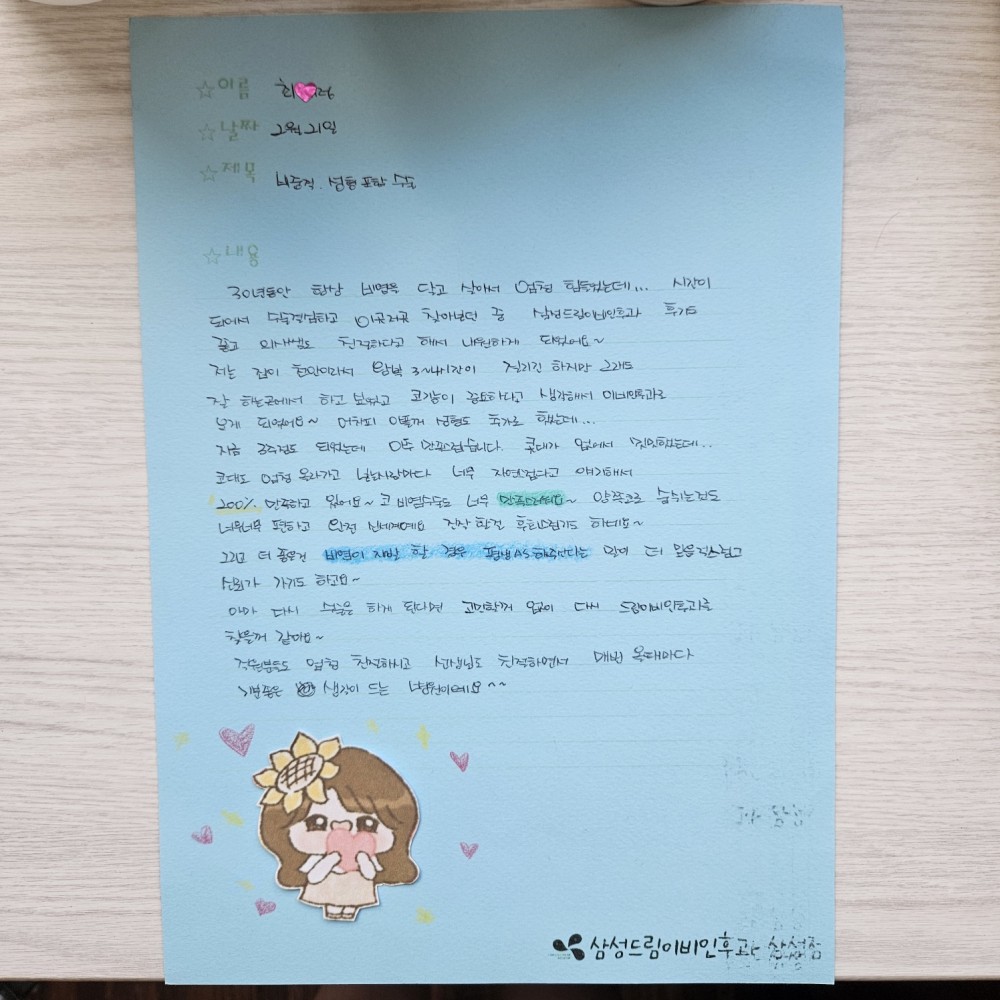 ☆이름 최
☆날짜 2월 21일
☆제목 비중격. 성형 포함 수술
☆내용
30년동안 항상 비염을 달고 살아서 엄청 힘들었는데... 시간이
되어서 수술결심하고 이곳저곳 찾아보던 중 삼성드림이비인후과 후기도
좋고 의사쌤도 친절하다고 해서 내원하게 되었어요~
저는 집이 천안이라서 왕복 3~4시간이 걸리긴 하지만 그래도
잘 하는곳에서 하고 싶었고 코기능이 중요하다고 생각해서 이비인후과로
오게 되었어요~ 어차피 이쁠꺼 성형도 추가로 했는데...
지금 3주정도 되었는데 아주 만족스럽습니다. 콧대가 없어서 밋밋했는데..
코대도 엄청 올라가고 보는사람마다 너무 자연스럽다고 얘기해서
200% 만족하고 있어요~ 코 비염수술도 너무 만족스러워요~ 양쪽으로 숨쉬는것도
너무너무 편하고 완전 신세계예요 진작 할껄 후회스럽기도 하네요~
그리고 더 좋은건 비염이 재발 할 경우 평생AS해주신다는 말이 더 믿음직스럽고
신뢰가 가기도 하고요~
아마 다시 수술을 하게 된다면 고민할꺼 없이 다시 드림이비인후과를
찾을꺼 같아요~
직원분들도 엄청 친절하시고 선생님도 친절하셔서 매번 올때마다
기분좋은 생각이 드는 병원이예요 ^^
삼성드림이비인후과 삼성점